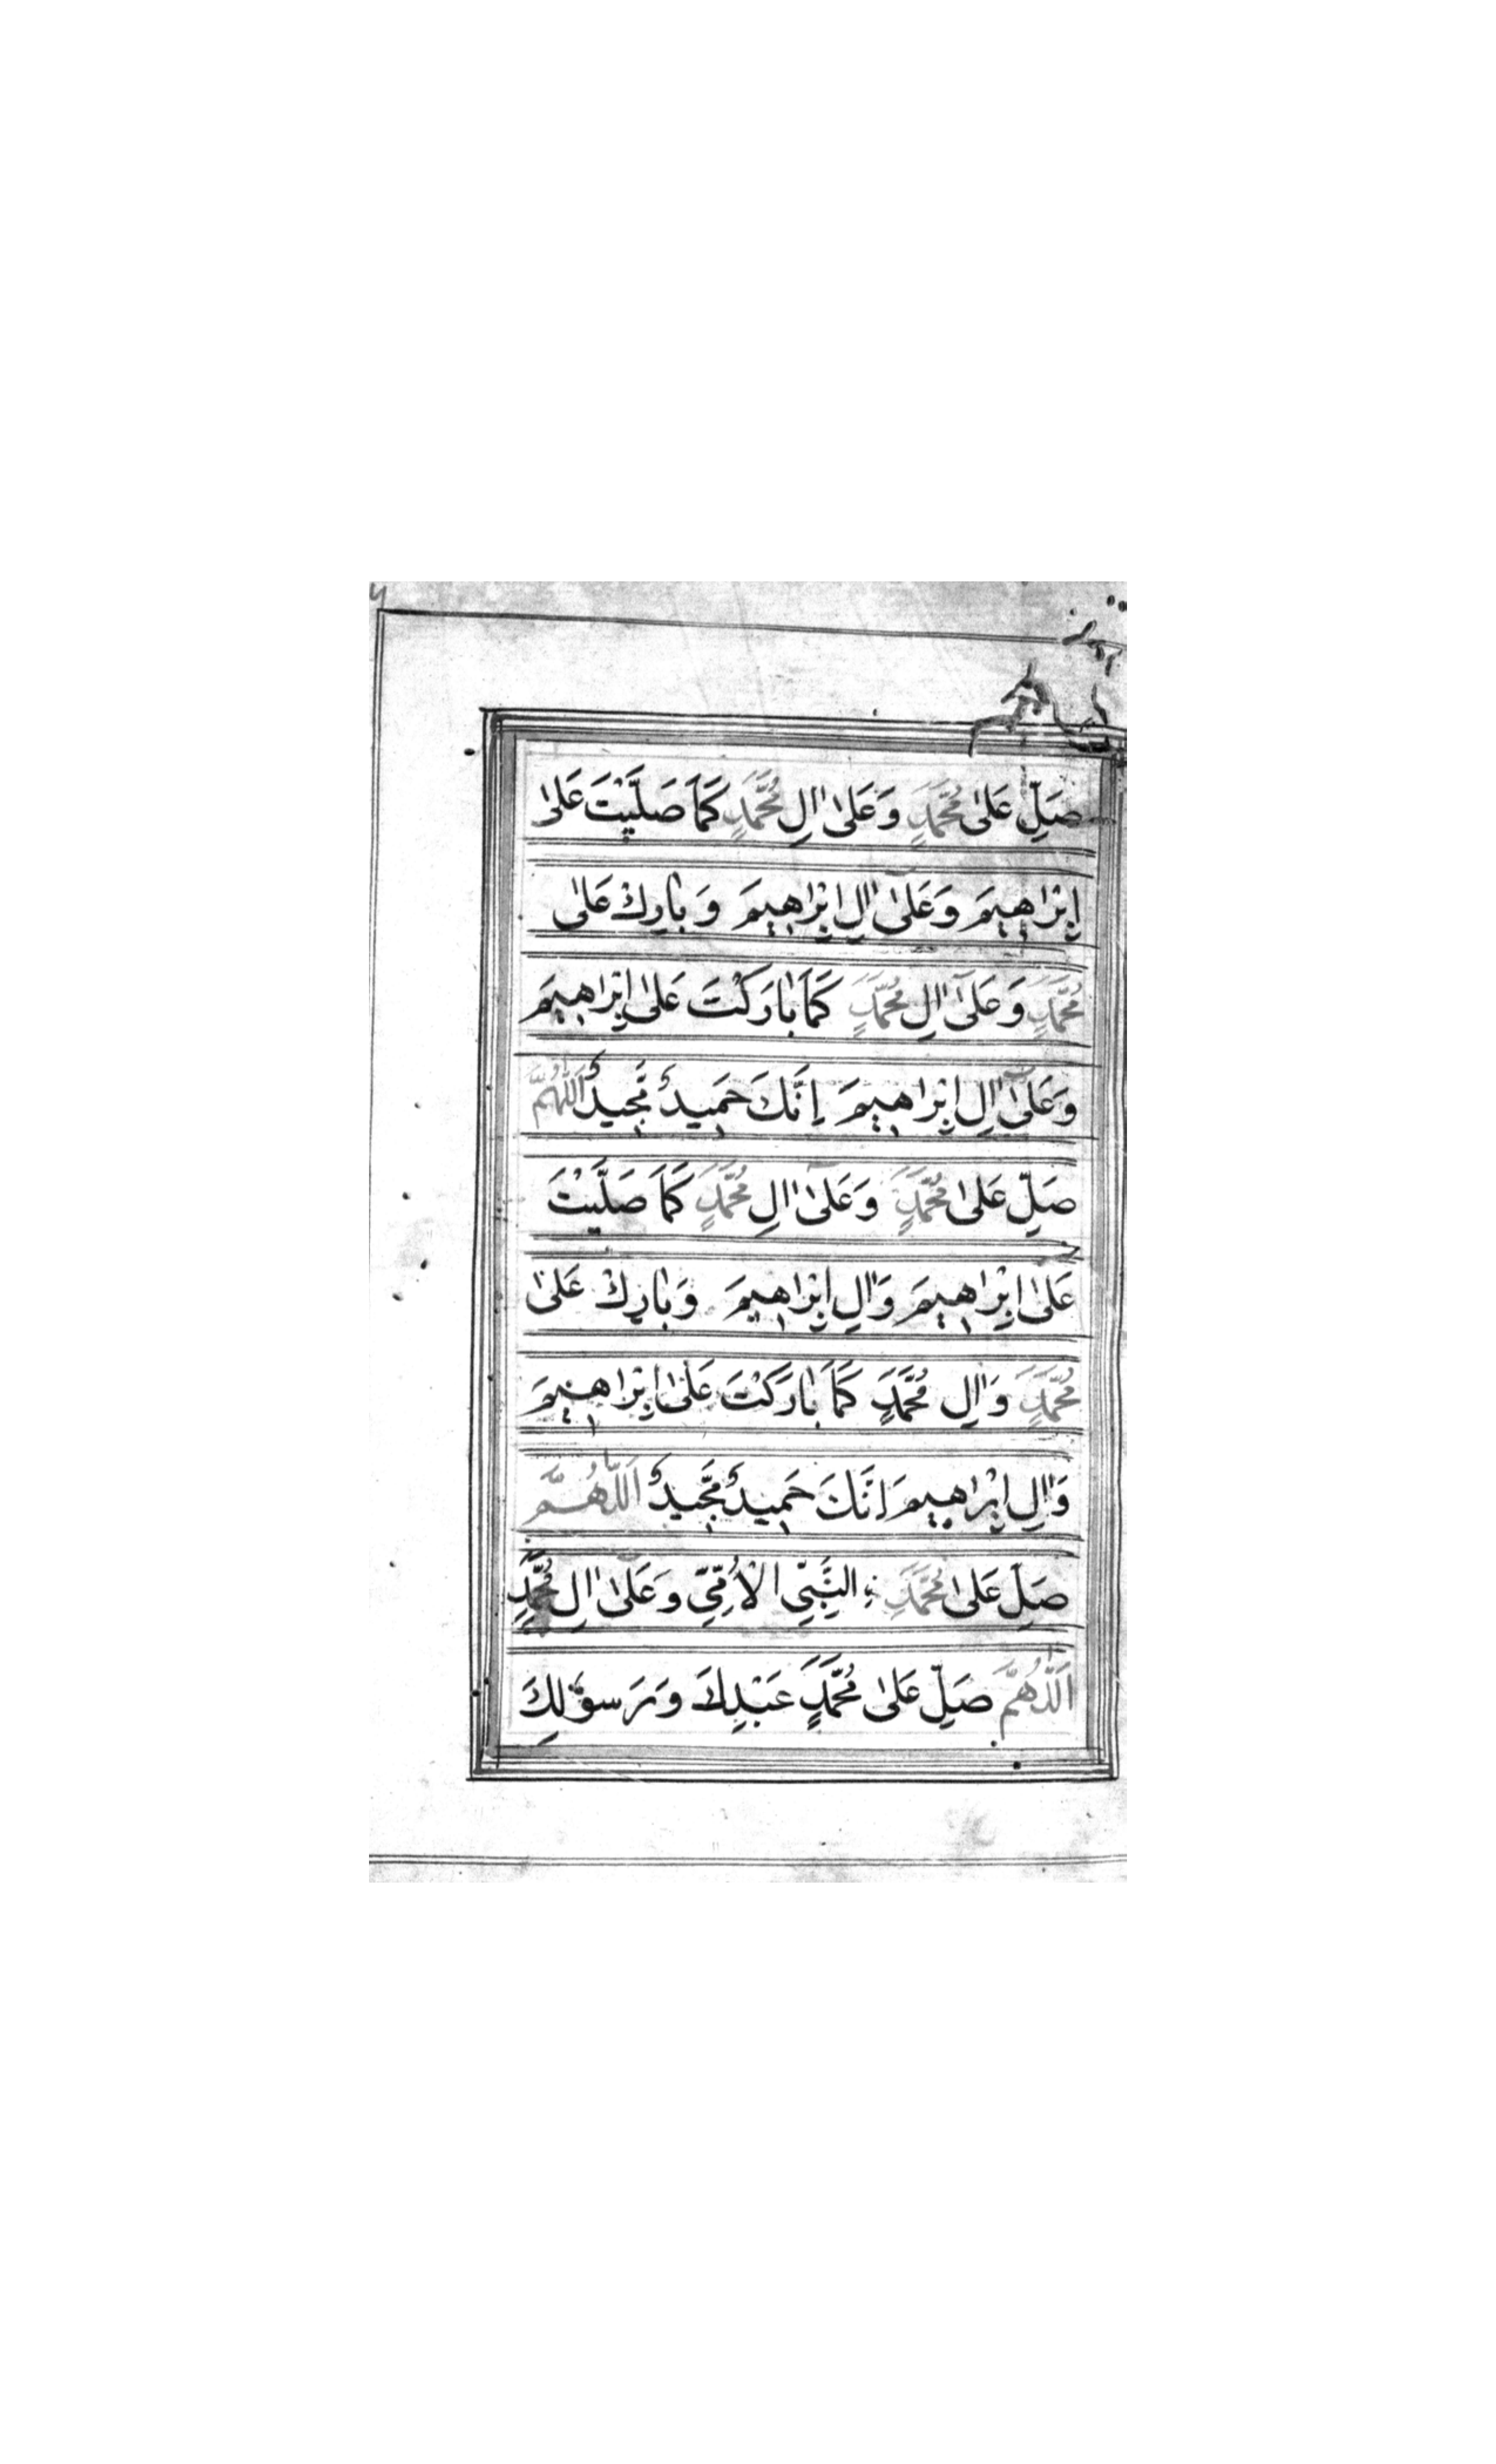 صَلِّ عَلٰى مُحَمَّدٍ وَعَلٰى اٰلِ مُحَمَّدٍ كَمَا صَلَّيْتَ عَلٰى
اِبْرَاهِيمَ وَعَلٰى اٰلِ اِبْرَاهِيمَ وَبَارِكْ عَلٰى
مُحَمَّدٍ وَعَلٰى اٰلِ مُحَمَّدٍ كَمَا بَارَكْتَ عَلٰى اِبْرَاهِيمَ
وَعَلٰى اٰلِ اِبْرَاهِيمَ اِنَّكَ حَمِيدٌ مَّجِيدٌ اَللّٰهُمَّ
صَلِّ عَلٰى مُحَمَّدٍ وَعَلٰى اٰلِ مُحَمَّدٍ كَمَا صَلَّيْتَ
عَلٰى اِبْرَاهِيمَ وَاٰلِ اِبْرَاهِيمَ وَبَارِكْ عَلٰى
مُحَمَّدٍ وَاٰلِ مُحَمَّدٍ كَمَا بَارَكْتَ عَلٰى اِبْرَاهِيمَ
وَاٰلِ اِبْرَاهِيمَ اِنَّكَ حَمِيدٌ مَّجِيدٌ اَللّٰهُمَّ
صَلِّ عَلٰى مُحَمَّدٍ نِ النَّبِيِّ الْاُمِّيِّ وَعَلٰى اٰلِ مُحَمَّدٍ
اَللّٰهُمَّ صَلِّ عَلٰى مُحَمَّدٍ عَبْدِكَ وَرَسُوْلِكَ